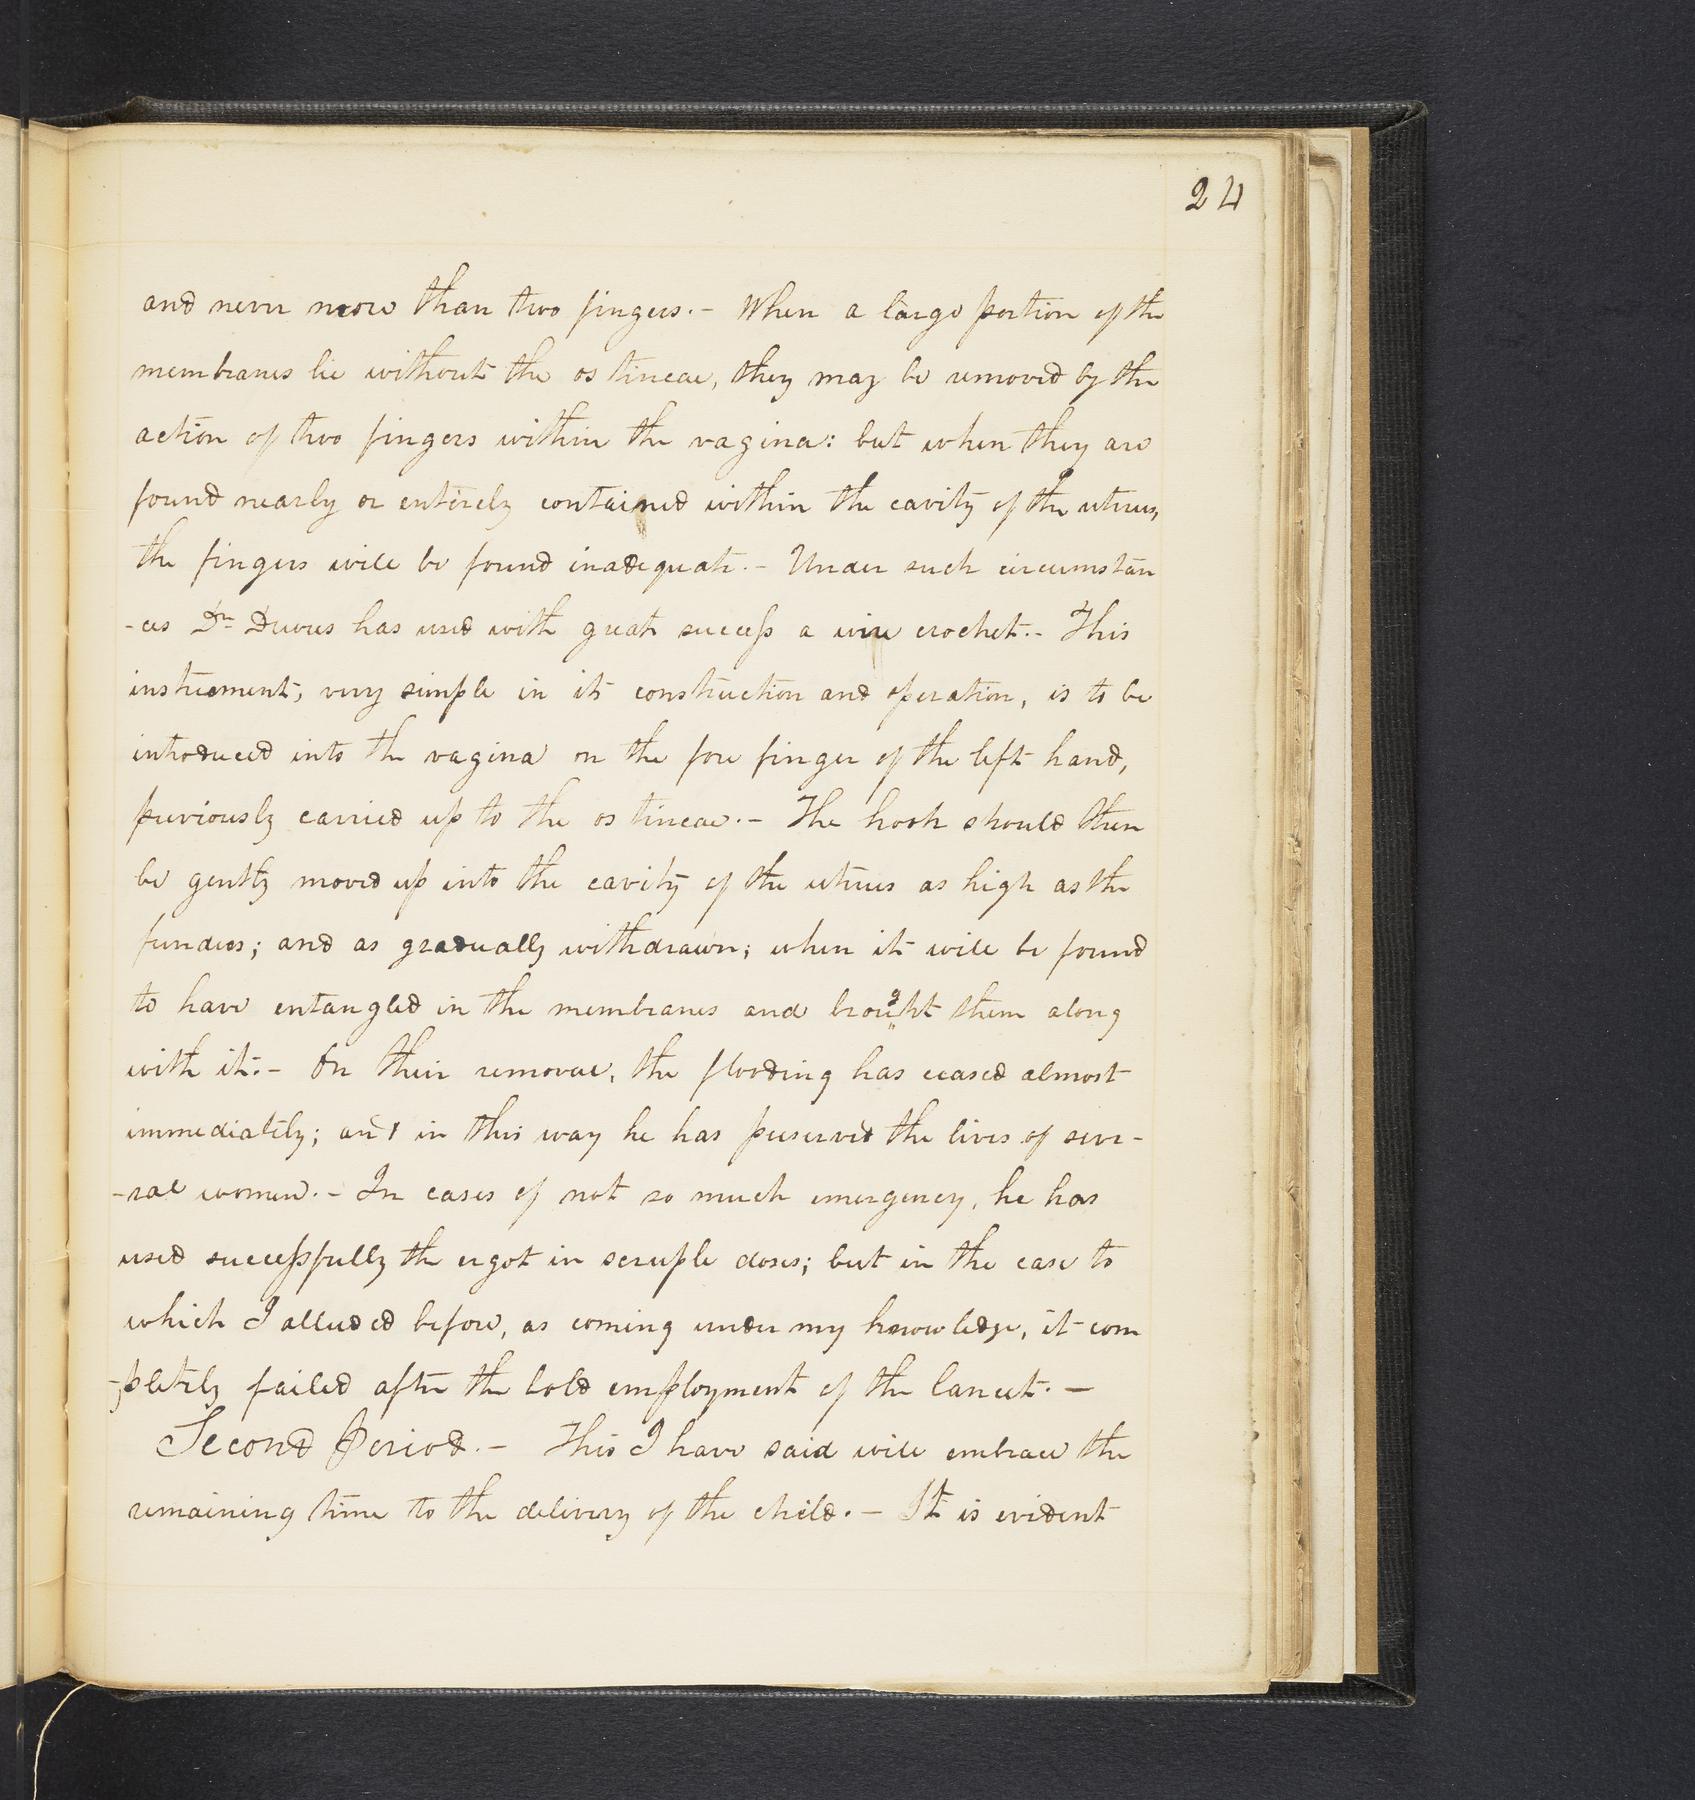 24
and never more than two fingers.- When a large portion of the
membranes lie without the os tincae, they may be removed by the
action of two fingers within the vagina: but when they are
found nearly or entirely contained within the cavity of the uterus,
the fingers will be found inadequate.- Under such circumstan
-ces Dr Dewees has used with great success a wire crochet.- This
instrument, very simple in its construction and operation, is to be
introduced into the vagina on the fore finger of the left hand,
previously carried up to the os tincae.- The hook should then
be gently moved up into the cavity of the uterus as high as the
fundus; and as gradually withdrawn; when it will be found
to have entangled in the membranes and brought them along
with it.- On their removal, the flooding has ceased almost
immediately; and in this way he has preserved the lives of seve-
-ral women.- In cases of not so much emergency, he has
used successfully the ergot in scruple doses; but in the case to
which I alluded before, as coming under my knowledge, it com
-pletely failed after the bold employment of the lancet.-
Second Period.- This I have said will embrace the
remaining time to the delivery of the child.- It is evident